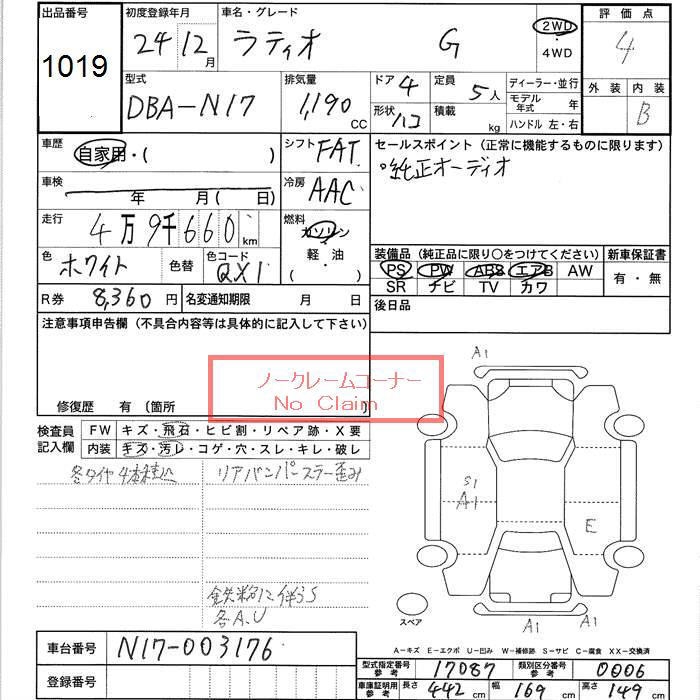 出品番号 初度登録年月 車名・グレード 評価点
1019 24年12月 ラティオ G 2WD・4WD 4
型式 排気量 ドア 4 定員 5人 ディーラー・並行 外装 内装
DBA-N17 1,190 CC 形状 ハコ 積載 kg モデル年式 年 B
ハンドル 左・右
車歴 自家用・( ) シフト FAT セールスポイント(正常に機能するものに限ります)
純正オーディオ
車検 年 月( 日) 冷房 AAC
走行 4万9千660km 燃料 ガソリン・軽油・( )
色 ホワイト 色替 色コード QX1
装備品(純正品に限り○をつけてください) 新車保証書
PS PW ABS エアB AW 有・無
SR ナビ TV カワ
R券 8,360円 名変通知期限 月 日 後日品
注意事項申告欄(不具合内容等は具体的に記入して下さい)
ノークレームコーナー
No Claim
修復歴 有(箇所
検査員記入欄 FW キズ・飛石・ヒビ割・リペア跡・X要
内装 キズ・汚レ・コゲ・穴・スレ・キレ・破レ
冬タイヤ4本積込 リアバンパーステー歪み
鉄粉に伴うS
各A.U
A1
S1
A1
E
スペア
A1 A1
A-キズ E-エクボ U-凹み W-補修跡 S-サビ C-腐食 XX-交換済
車台番号 N17-003176 型式指定番号参考 17087 類別区分番号参考 0006
登録番号 車庫証明用参考 長さ 442cm 幅 169cm 高さ 149cm